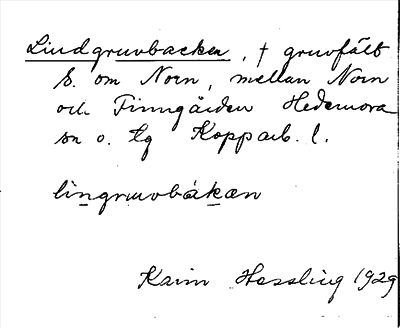 Lindgruvbacken, † gruvfält
S. om Norn, mellan Norn
och Finngården Hedemora
sn o. tg Kopparb. l.
lingruvbákæn
Karin Hessling 1929